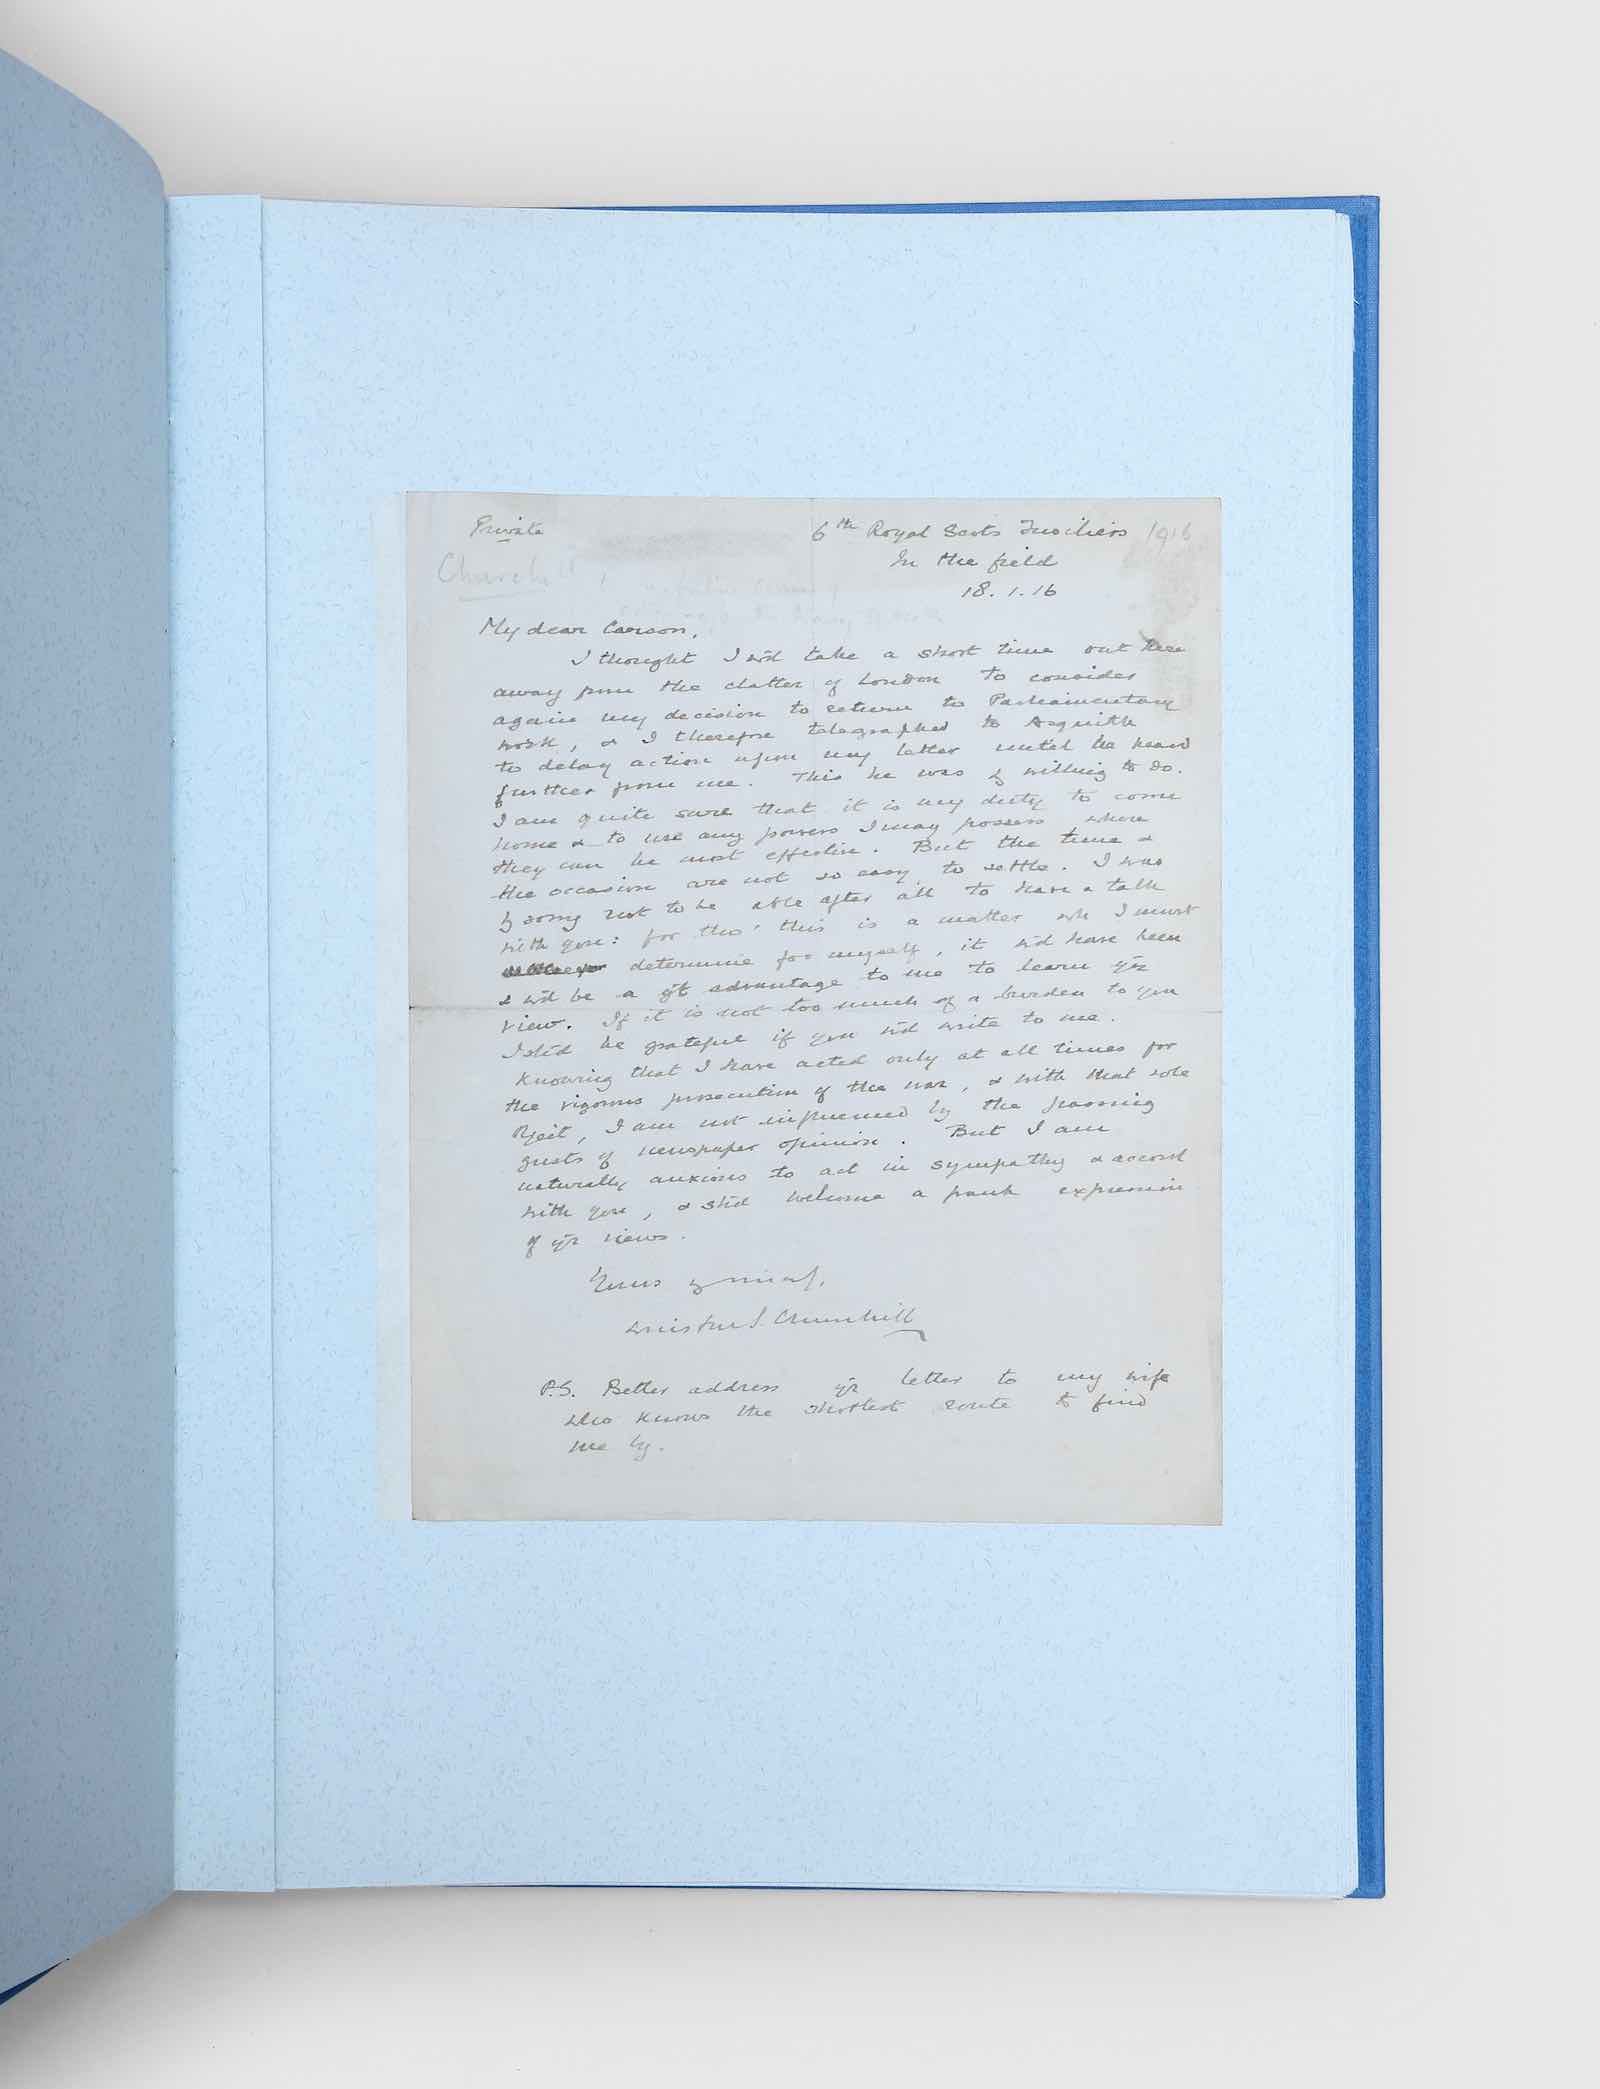 Private
6th Royal Scots Fusiliers 1916
In the field
18.1.16
Churchill
My dear Carson,
I thought I wd take a short time out here
away from the clatter of London to consider
again my decision to return to Parliamentary
work, & I therefore telegraphed to Asquith
to delay action upon my letter until he heard
further from me. This he was willing to do.
I am quite sure that it is my duty to come
home & to use any powers I may possess where
they can be most effective. But the time &
the occasion are not so easy to settle. I was
sorry not to be able after all to have a talk
with you: for tho' this is a matter wh I must
determine for myself, it wd have been
& wd be a gt advantage to me to learn yr
view. If it is not too much of a burden to you
I shd be grateful if you wd write to me.
Knowing that I have acted only at all times for
the vigorous prosecution of the war, & with that sole
object, I am not influenced by the passing
gusts of newspaper opinion. But I am
naturally anxious to act in sympathy & accord
with you, & shd welcome a frank expression
of yr views.
Yours
Winston S. Churchill
P.S. Better address yr letter to my wife
who knows the shortest route to find
me by.